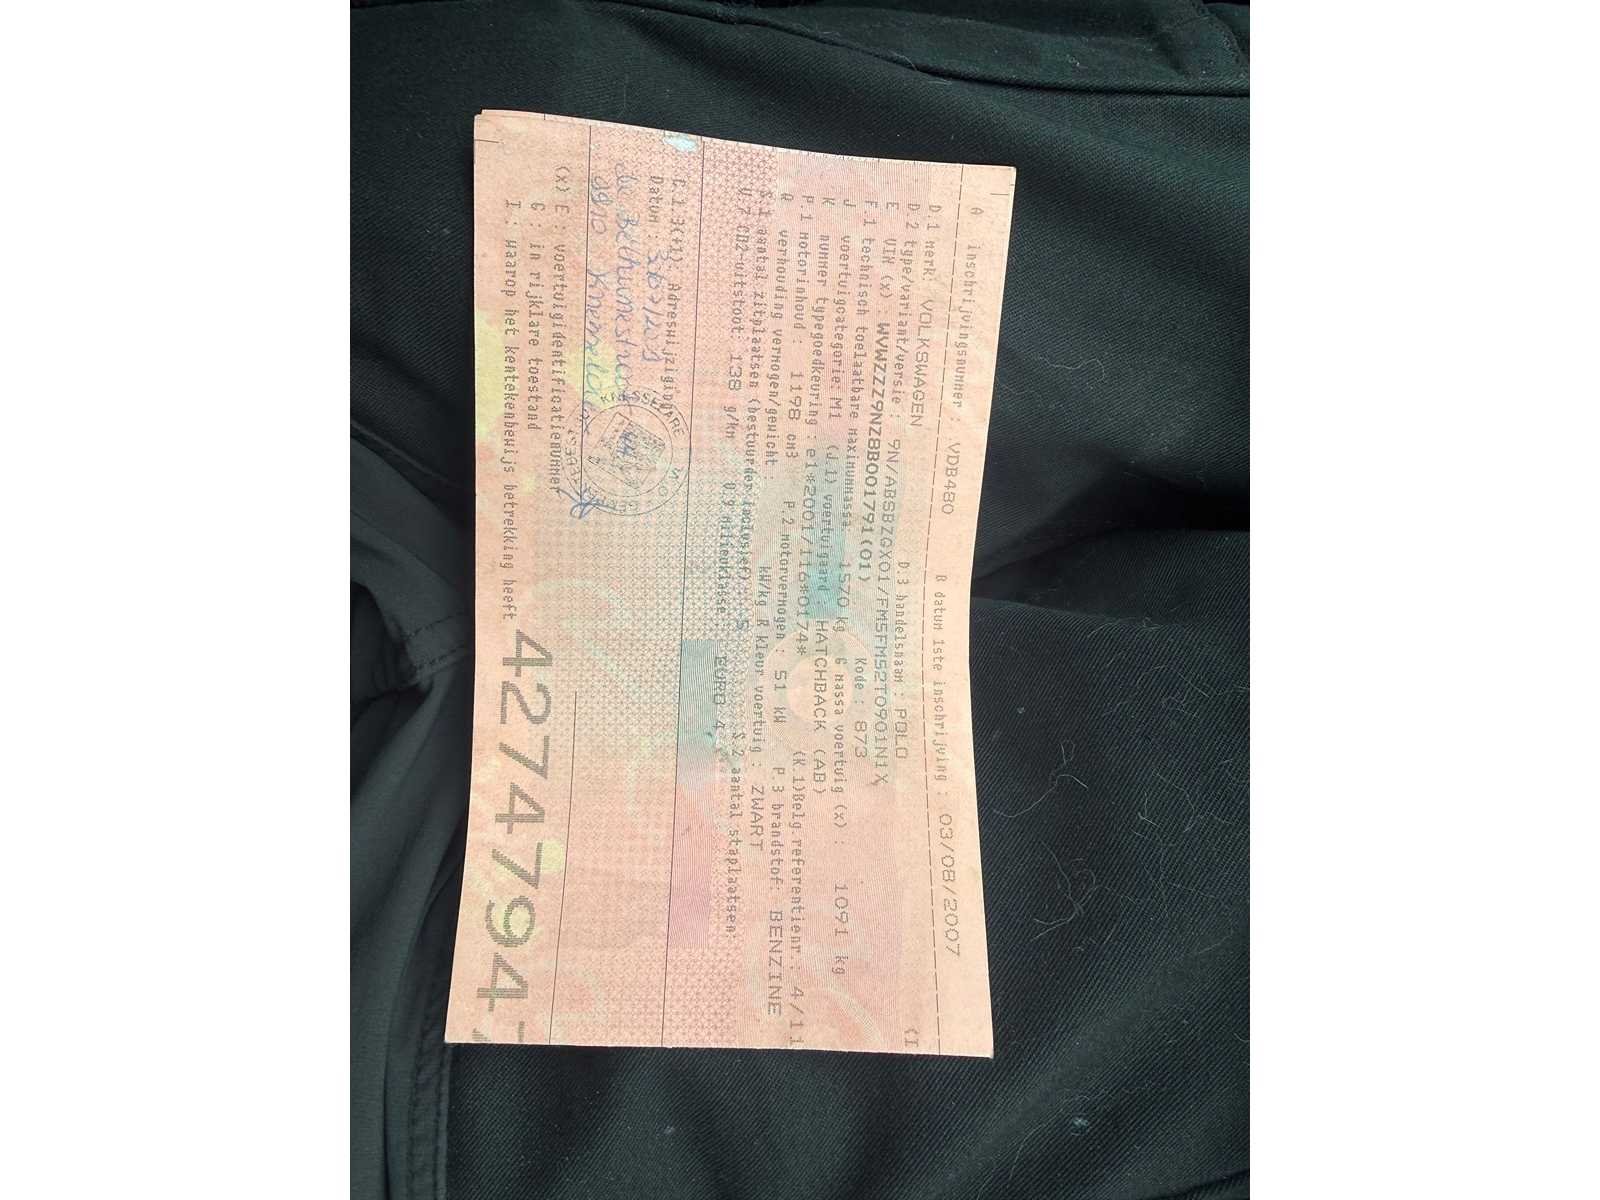 A inschrijvingsnummer : VDB480 B datum 1ste inschrijving : 03/08/2007
D.1 merk: VOLKSWAGEN D.3 handelsnaam : POLO (I
D.2 type/variant/versie : 9N/ABSBZGX01/FM5FM52T0901N1X
E VIN (x): WVWZZZ9NZ8B001791(01) Kode : 873
F.1 technisch toelaatbare maximummassa 1570 kg G massa voertuig (x) : 1091 kg
J voertuigcategorie: M1 (J.1) voertuigaard : HATCHBACK (AB)
K nummer typegoedkeuring : e1*2001/116*0174* (K.1)Belg.referentienr.: 4/11
P.1 motorinhoud : 1198 cm3 P.2 motorvermogen : 51 kW P.3 brandstof: BENZINE
Q verhouding vermogen/gewicht : kW/kg R kleur voertuig : ZWART
S.1 aantal zitplaatsen (bestuurder inclusief): 5 S.2 aantal staplaatsen:
V.7 CO2-uitstoot: 138 g/km V.9 milieuklasse : EURO 4
C.1 3(+1): Adreswijziging
Datum :
9910 Knesselare
KNESSELARE
(x) E : voertuigidentificatienummer
G : in rijklare toestand
I : waarop het kentekenbewijs betrekking heeft
4274794